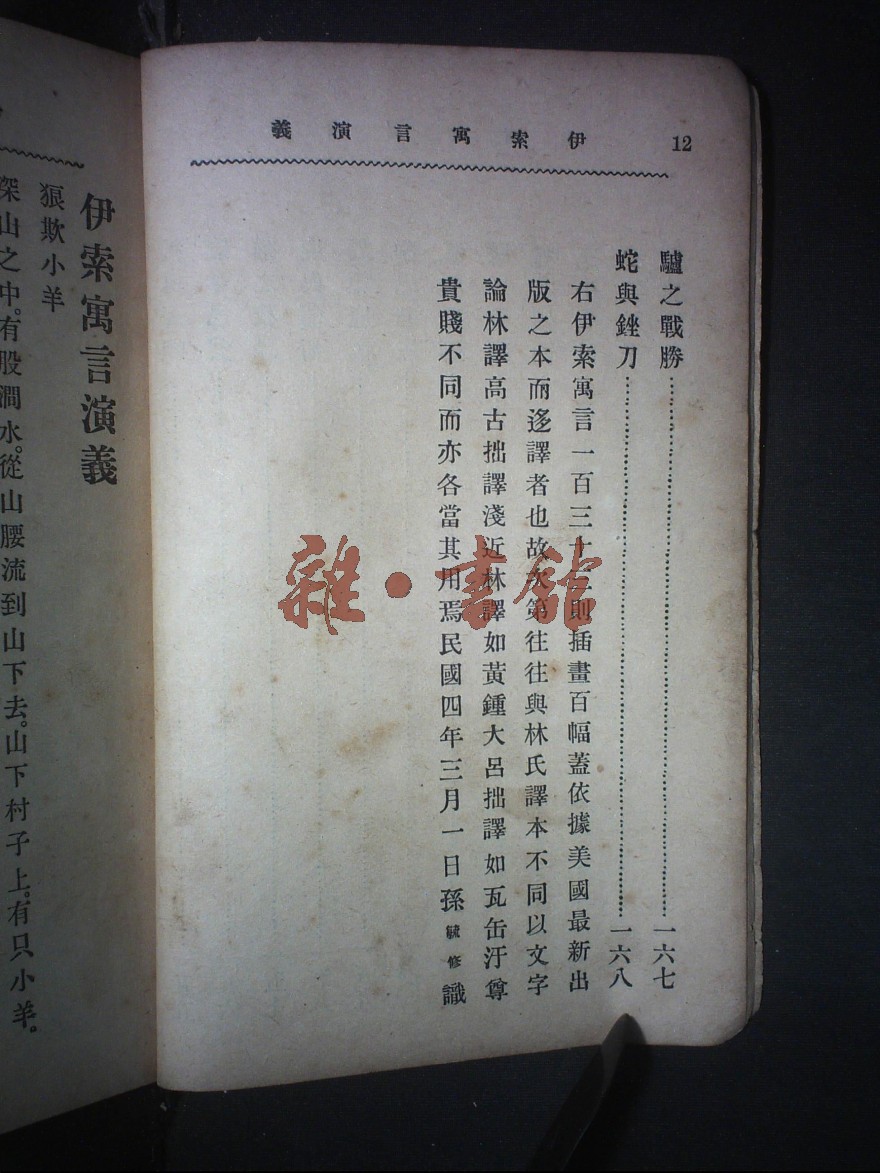 12 伊索寓言演義
驢之戰勝……一六七
蛇與銼刀……一六八
右伊索寓言一百三十 則插畫百幅蓋依據美國最新出
版之本而迻譯者也故次第往往與林氏譯本不同以文字
論林譯高古拙譯淺近林譯如黃鍾大呂拙譯如瓦缶汙尊
貴賤不同而亦各當其用焉民國四年三月一日孫毓修識
伊索寓言演義
狼欺小羊
深山之中。有股澗水。從山腰流到山下去。山下村子上。有只小羊。
雜·書館